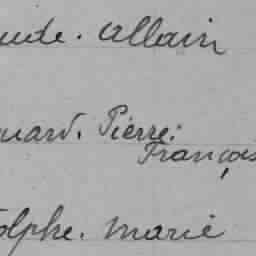 ude. Allain
uard. Pierre.
François
olphe. Marie